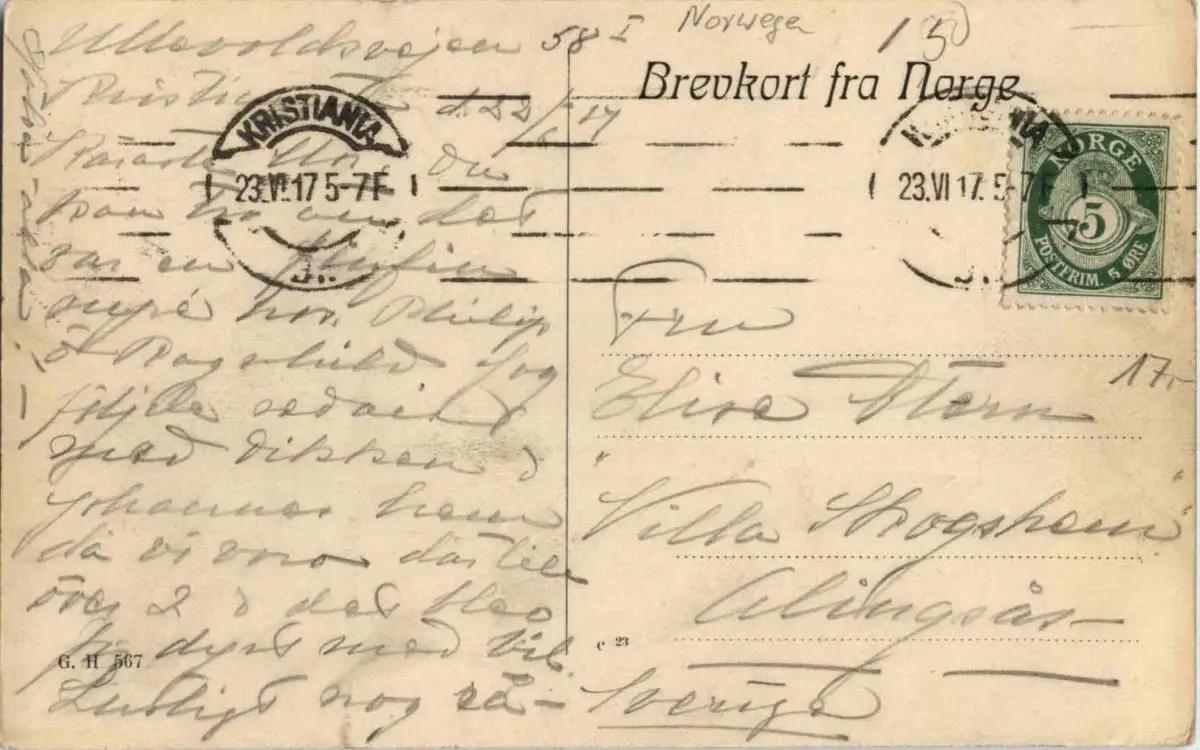 Norwege
150
Brevkort fra Norge
Ullevoldsvejen 58 I
d. 22/6 17
KRISTIANIA
23.VI.17 5-7 F
KRISTIANIA
23.VI.17. 5-7 F
NORGE
5
POSTFRIM. 5 ØRE
17.-
Käraste Mor, Du
kan tro om det
var en
supé hos Philip
& Ragnhild Jag
följde sedan
med Dikken &
Johannes hem
då vi voro där till
över 2 & det blev
dyrt med bil
Lustigt nog så-
Fru
Elise Stern
"Villa Skogshem"
Alingsås-
Sverige
G. H 567
c 23